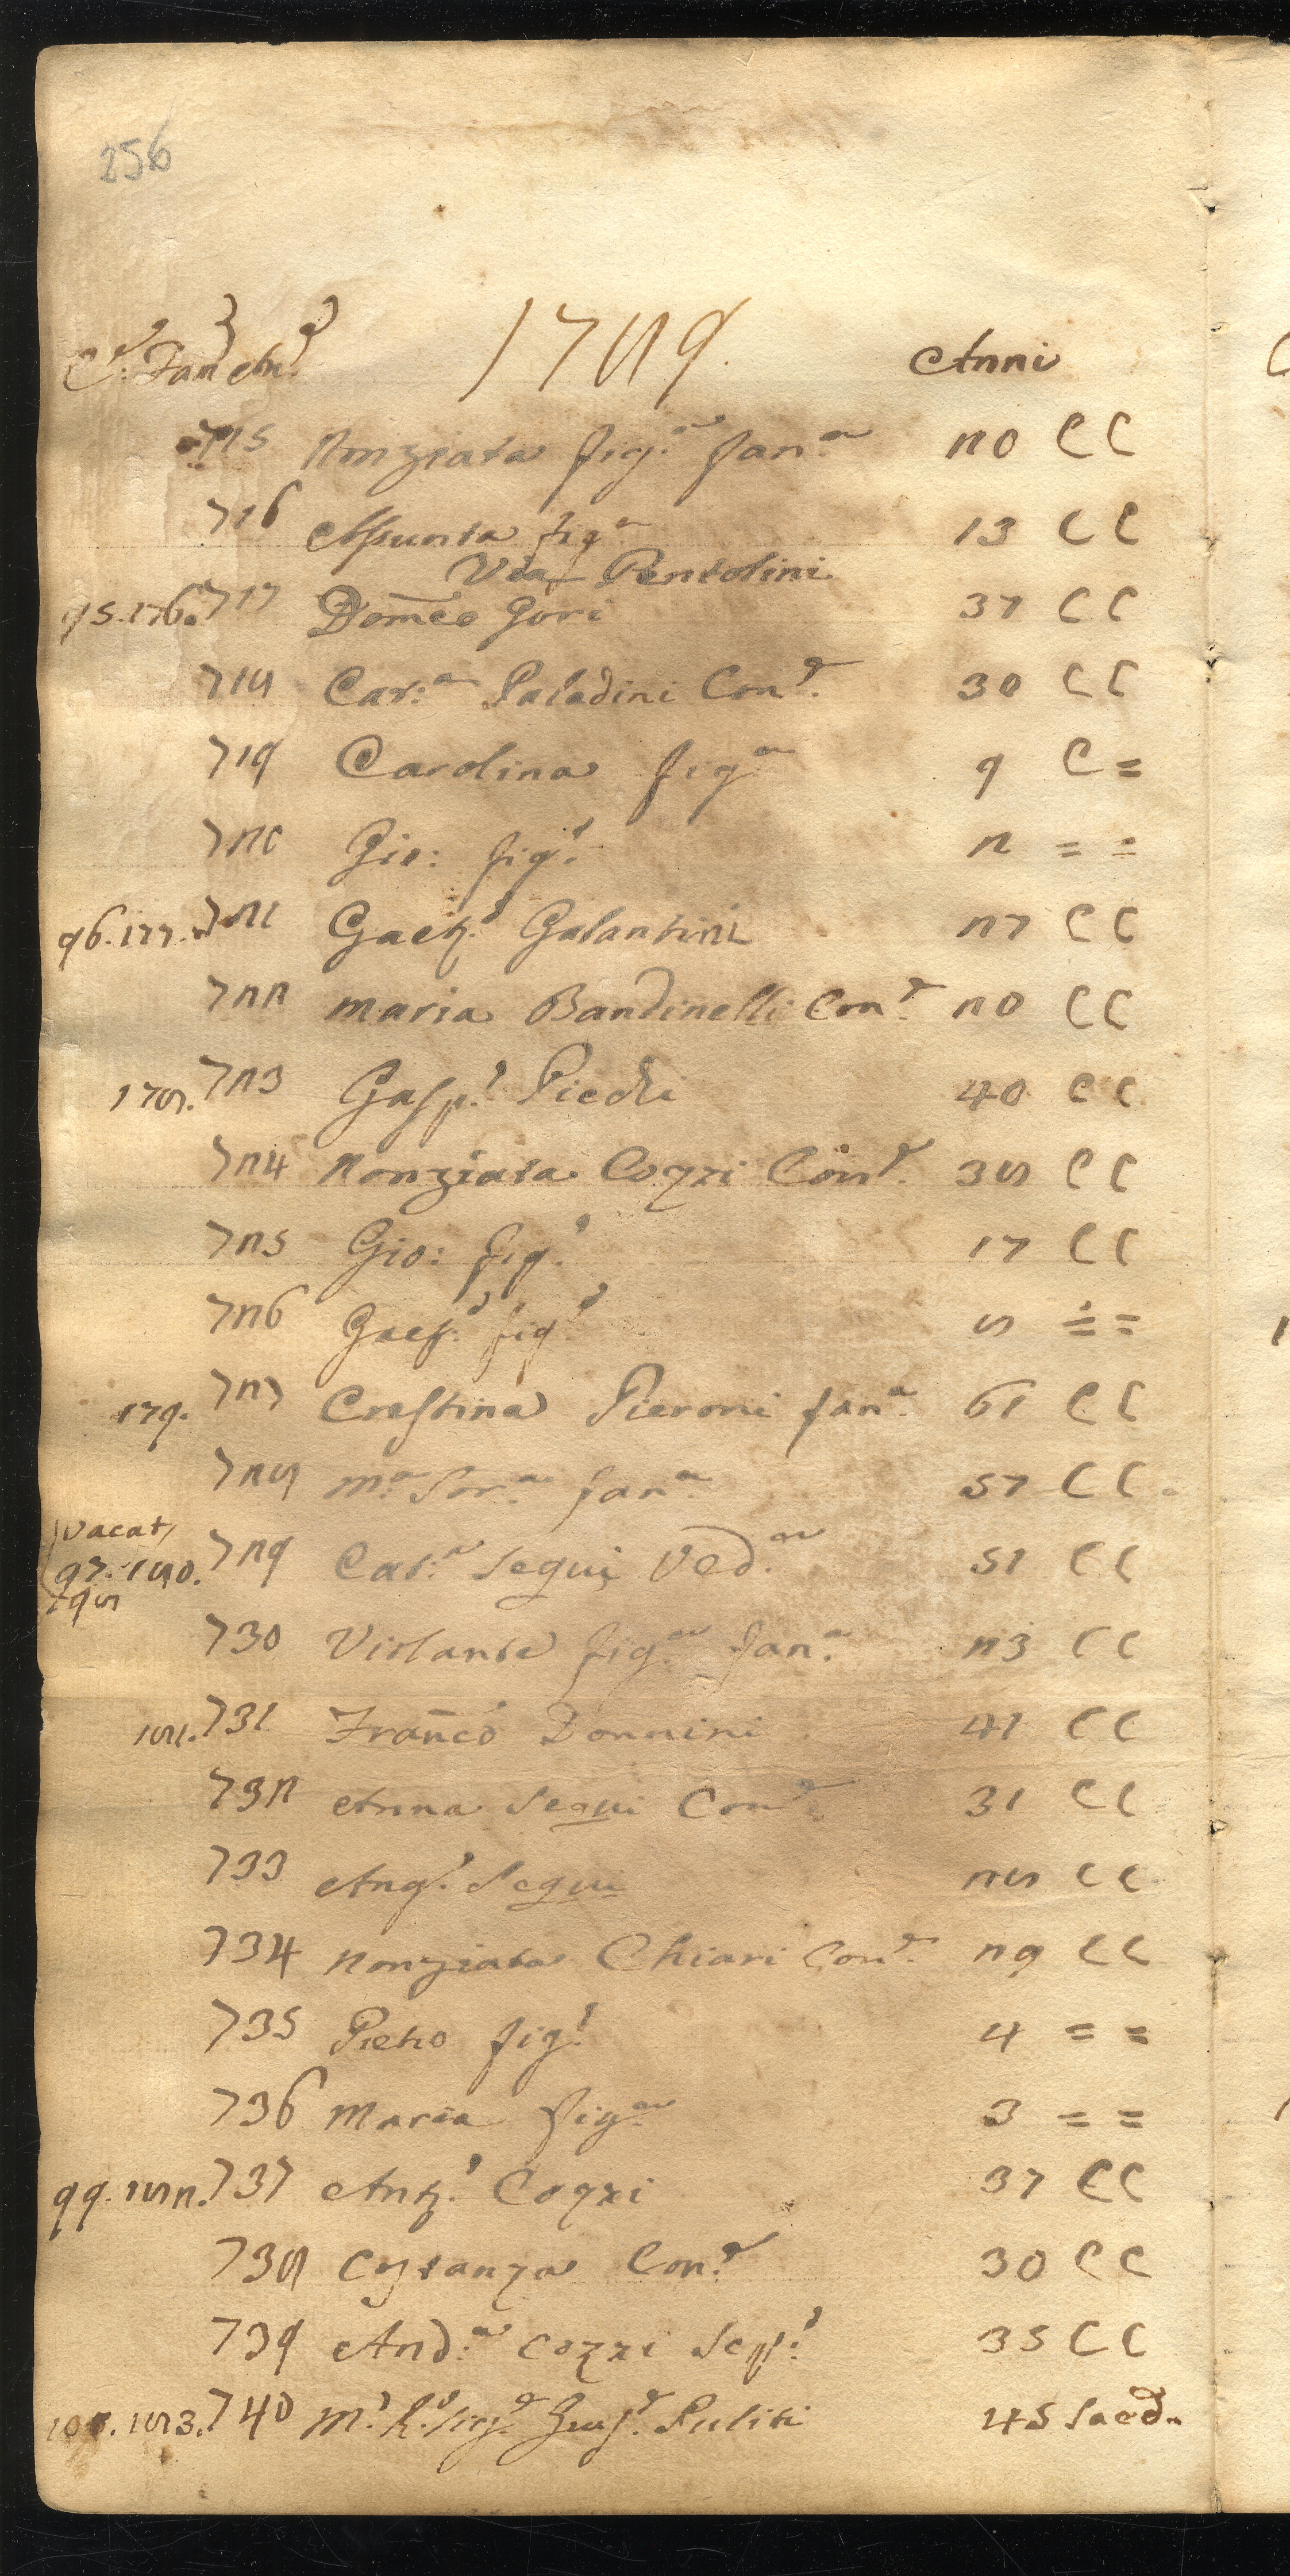 256
C.e Fam An.e 1789. Anni
715 Nonziata fig.a fan.a 20 C C
716 Assunta fig.a 13 C C
Via Pentolini
95. 176. 717 Domco Gori 37 C C
718 Cat:a Paladini Con.e 30 C C
719 Carolina fig.a 9 C =
720 Gio: fig.o 2 = =
96. 177. 721 Gaet.o Galantini 27 C C
722 Maria Bandinelli Con.e 20 C C
178. 723 Gasp.o Piedi 40 C C
724 Nonziata Cozzi Con.e 38 C C
725 Gio: fig.o 17 C C
726 Gaet.o fig.o 8 = =
179. 727 Crestina Pieroni fan.a 61 C C
728 M.a Sor.a fan.a 57 C C
vacat
97. 180. 729 Cat.a Segui Ved.a 51 C C
98
730 Violante fig.a fan.a 23 C C
181. 731 Franco Donnini 41 C C
732 Anna Segui Con.e 31 C C
733 Ang.o Segui 28 C C
734 Nonziata Chiari Con.e 29 C C
735 Pietro fig.o 4 = =
736 Maria fig.a 3 = =
99. 182. 737 Ant.o Cozzi 37 C C
738 Costanza Con.e 30 C C
739 And.a Cozzi 35 C C
100. 183. 740 M.o R.o Sig.e Puliti 45 Sacd.